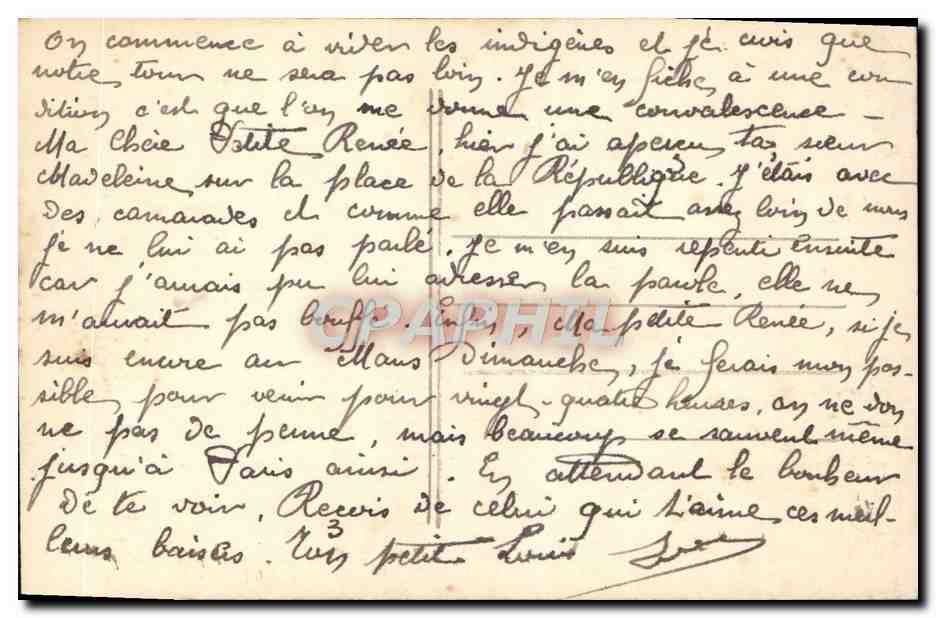 On commence à vider les indigènes et je crois que
notre tour ne sera pas loin. Je m'en fiche à une con
dition c'est que l'on me donne une convalescence –
Ma Chère Petite Renée, hier j'ai aperçu ta sœur
Madeleine sur la place de la République. J'étais avec
des camarades et comme elle passait assez loin de nous
je ne lui ai pas parlé. Je m'en suis repenti ensuite
car j'aurais pu lui adresser la parole, elle ne
m'aurait pas bouffé. Enfin, Ma petite Renée, si je
suis encore au Mans Dimanche, je ferais mon pos-
sible pour venir pour vingt-quatre heures, on ne don
ne pas de perme, mais beaucoup se sauvent même
jusqu'à Paris ainsi. En attendant le bonheur
de te voir, Reçois de celui qui t'aime ces meil-
leurs baisers. Ton petit Louis
CPAPHIL